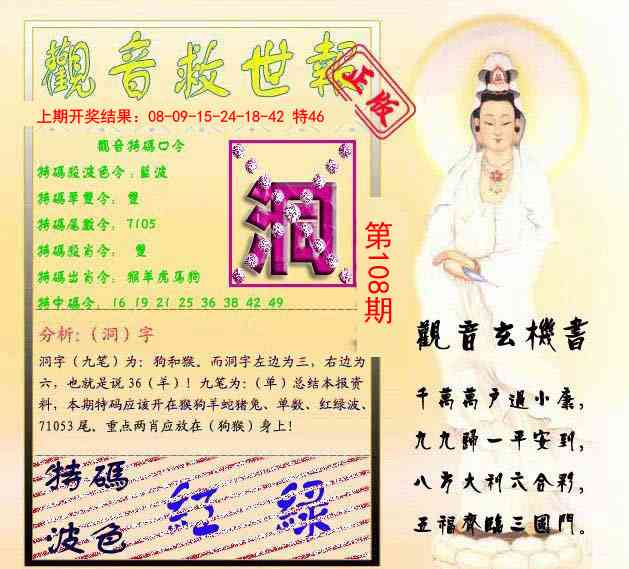 觀音救世報
正版
上期开奖结果：08-09-15-24-18-42 特46
觀音特碼口令
特碼段波色令：藍波
特碼單雙令： 雙
特碼尾數令： 7105
特碼段肖令： 雙
特碼出肖令： 猴羊虎馬狗
特中碼令： 16 19 21 25 36 38 42 49
洞
第108期
分析:（洞）字
洞字（九笔）为：狗和猴、而洞字左边为三，右边为
六，也就是说 36（羊）！九笔为：（单）总结本报资
料，本期特码应该开在猴狗羊蛇猪兔、单数、红绿波、
71053 尾、重点两肖应放在（狗猴）身上！
特碼
波色
红 緑
觀音玄機書
千萬萬户過小康，
九九歸一平安到，
八方大利六合彩，
五福齊臨三國門。